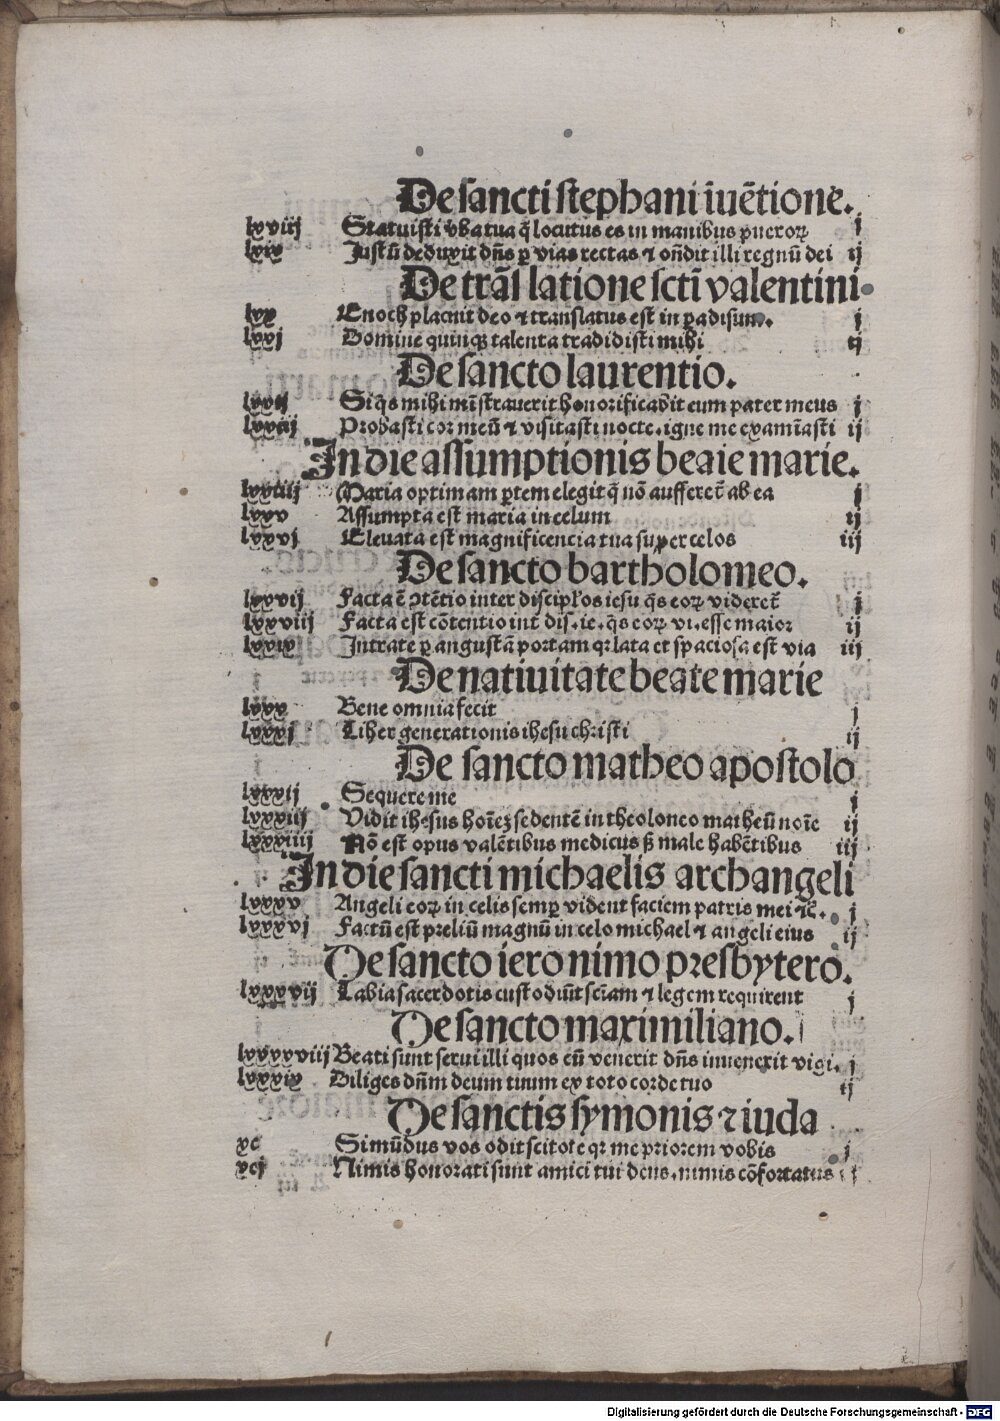 De sancti stephani īuētione.
lxviij Statuisti vba tua q̄ locutus es in manibus pueroꝝ j
lxix Justū deduxit dn̄s ꝑ vias rectas ⁊ on̄dit illi regnū dei ij
De trās latione sctī valentini
lxx Enoch placuit deo ⁊ translatus est in ꝑadisum. j
lxxj Domine quinqꝫ talenta tradidisti mihi ij
De sancto laurentio.
lxxij Si q̄s mihi mīstrauerit honorificabit eum pater meus j
lxxiij Probasti cor meū ⁊ visitasti nocte. igne me examīasti ij
In die assumptionis beate marie.
lxxiiij Maria optimam ꝑtem elegit q̄ nō aufferet̄ ab ea j
lxxv Assumpta est maria in celum ij
lxxvj Eleuata est magnificencia tua super celos iij
De sancto bartholomeo.
lxxvij Facta ē ꝯtētio inter discipl̓os iesu q̄s eoꝝ videret̄ j
lxxviij Facta est cōtentio int̄ dis. ie. q̄s eoꝝ vi. esse maior ij
lxxix Intrate ꝑ angustā portam qꝛ lata et spaciosa est via iij
De natiuitate beate marie
lxxx Bene omnia fecit j
lxxxj Liber generationis ihesu christi ij
De sancto matheo apostolo
lxxxij Sequere me j
lxxxiij Vidit ihesus hoīeꝫ sedentē in theoloneo matheū noīe ij
lxxxiiij Nō est opus valētibus medicus sꝫ male habētibus iij
In die sancti michaelis archangeli
lxxxv Angeli eoꝝ in celis semꝑ vident faciem patris mei ⁊c̄. j
lxxxvj Factū est preliū magnū in celo michael ⁊ angeli eius ij
De sancto ieronimo presbytero.
lxxxvij Labia sacerdotis custodiūt sciam ⁊ legem requirent j
De sancto maximiliano.
lxxxxviij Beati sunt serui illi quos cū venerit dn̄s inuenerit vigi. j
lxxxix Diliges dn̄m deum tuum ex toto corde tuo ij
De sanctis symonis ⁊ iuda
xc Si mūdus vos odit scitote qꝛ me priorem vobis j
xcj Nimis honorati sunt amici tui deus. nimis cōfortatus ij
Digitalisierung gefördert durch die Deutsche Forschungsgemeinschaft - DFG